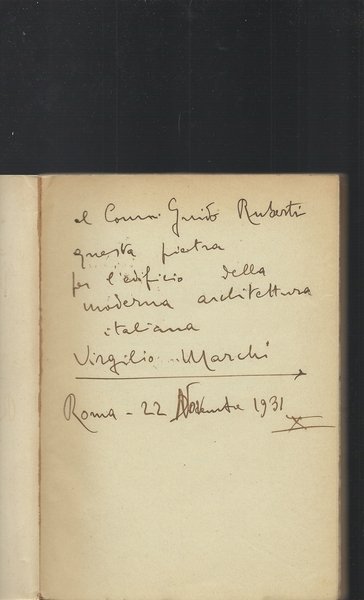 al Comm. Guido Ruberti
questa pietra
per l'edificio della
moderna architettura
italiana
Virgilio Marchi
Roma - 22 Novembre 1931
X